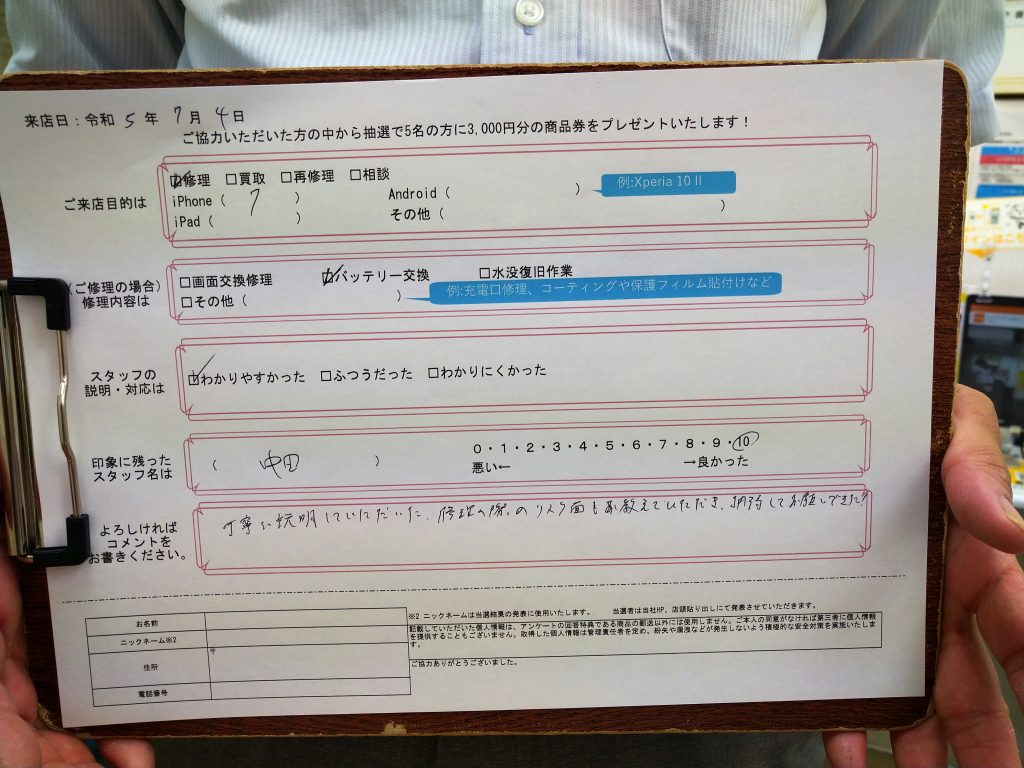 来店日：令和 5 年 7 月 4 日
ご協力いただいた方の中から抽選で5名の方に3,000円分の商品券をプレゼントいたします！
ご来店目的は
☑修理 □買取 □再修理 □相談
iPhone（ 7 ） Android（ ） 例:Xperia 10 II
iPad（ ） その他（ ）
（ご修理の場合）
修理内容は
□画面交換修理 ☑バッテリー交換 □水没復旧作業
□その他（ ） 例:充電口修理、コーティングや保護フィルム貼付けなど
スタッフの
説明・対応は
☑わかりやすかった □ふつうだった □わかりにくかった
印象に残った
スタッフ名は
（ 中田 ）
0・1・2・3・4・5・6・7・8・9・10
悪い← →良かった
よろしければ
コメントを
お書きください。
丁寧に説明していただいた、修理の際のリスク面もお教えていただき、納得してお願いできた!
お名前
ニックネーム※2
住所 〒
電話番号
※2 ニックネームは当選結果の発表に使用いたします。 当選者は当社HP、店頭貼り出しにて発表させていただきます。
記載していただいた個人情報は、アンケートの回答特典である商品の郵送以外には使用しません。ご本人の同意がなければ第三者に個人情報
を提供することもございません。取得した個人情報は管理責任者を定め、紛失や漏洩などが発生しないよう積極的な安全対策を実施いたしま
す。
ご協力ありがとうございました。